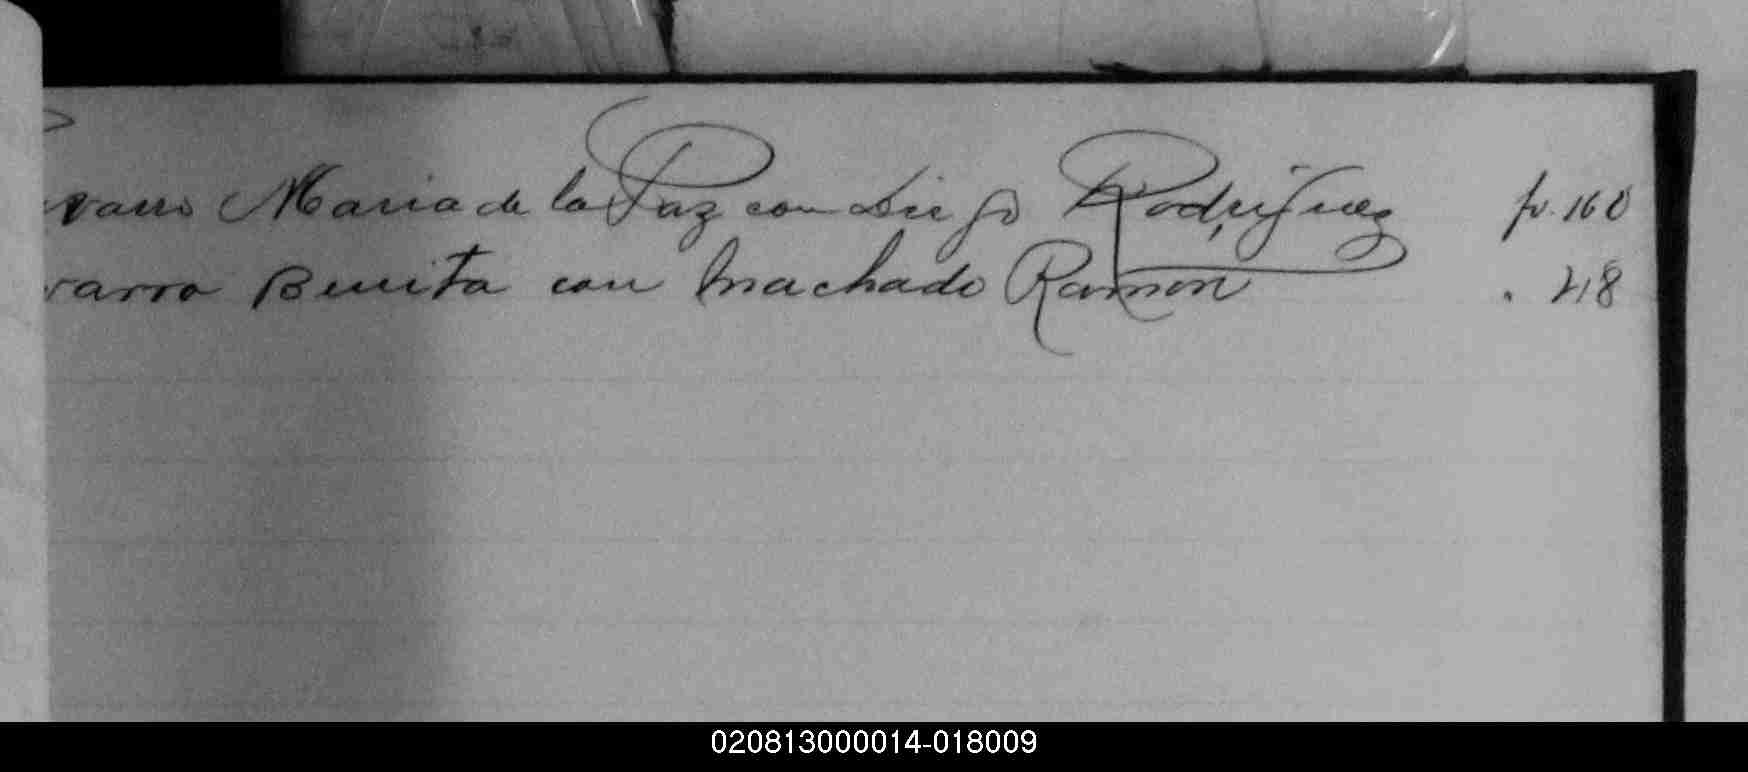 varro Maria de la Paz con Diego Rodriguez fo. 160
varro Benita con Machado Ramon . 218
020813000014-018009